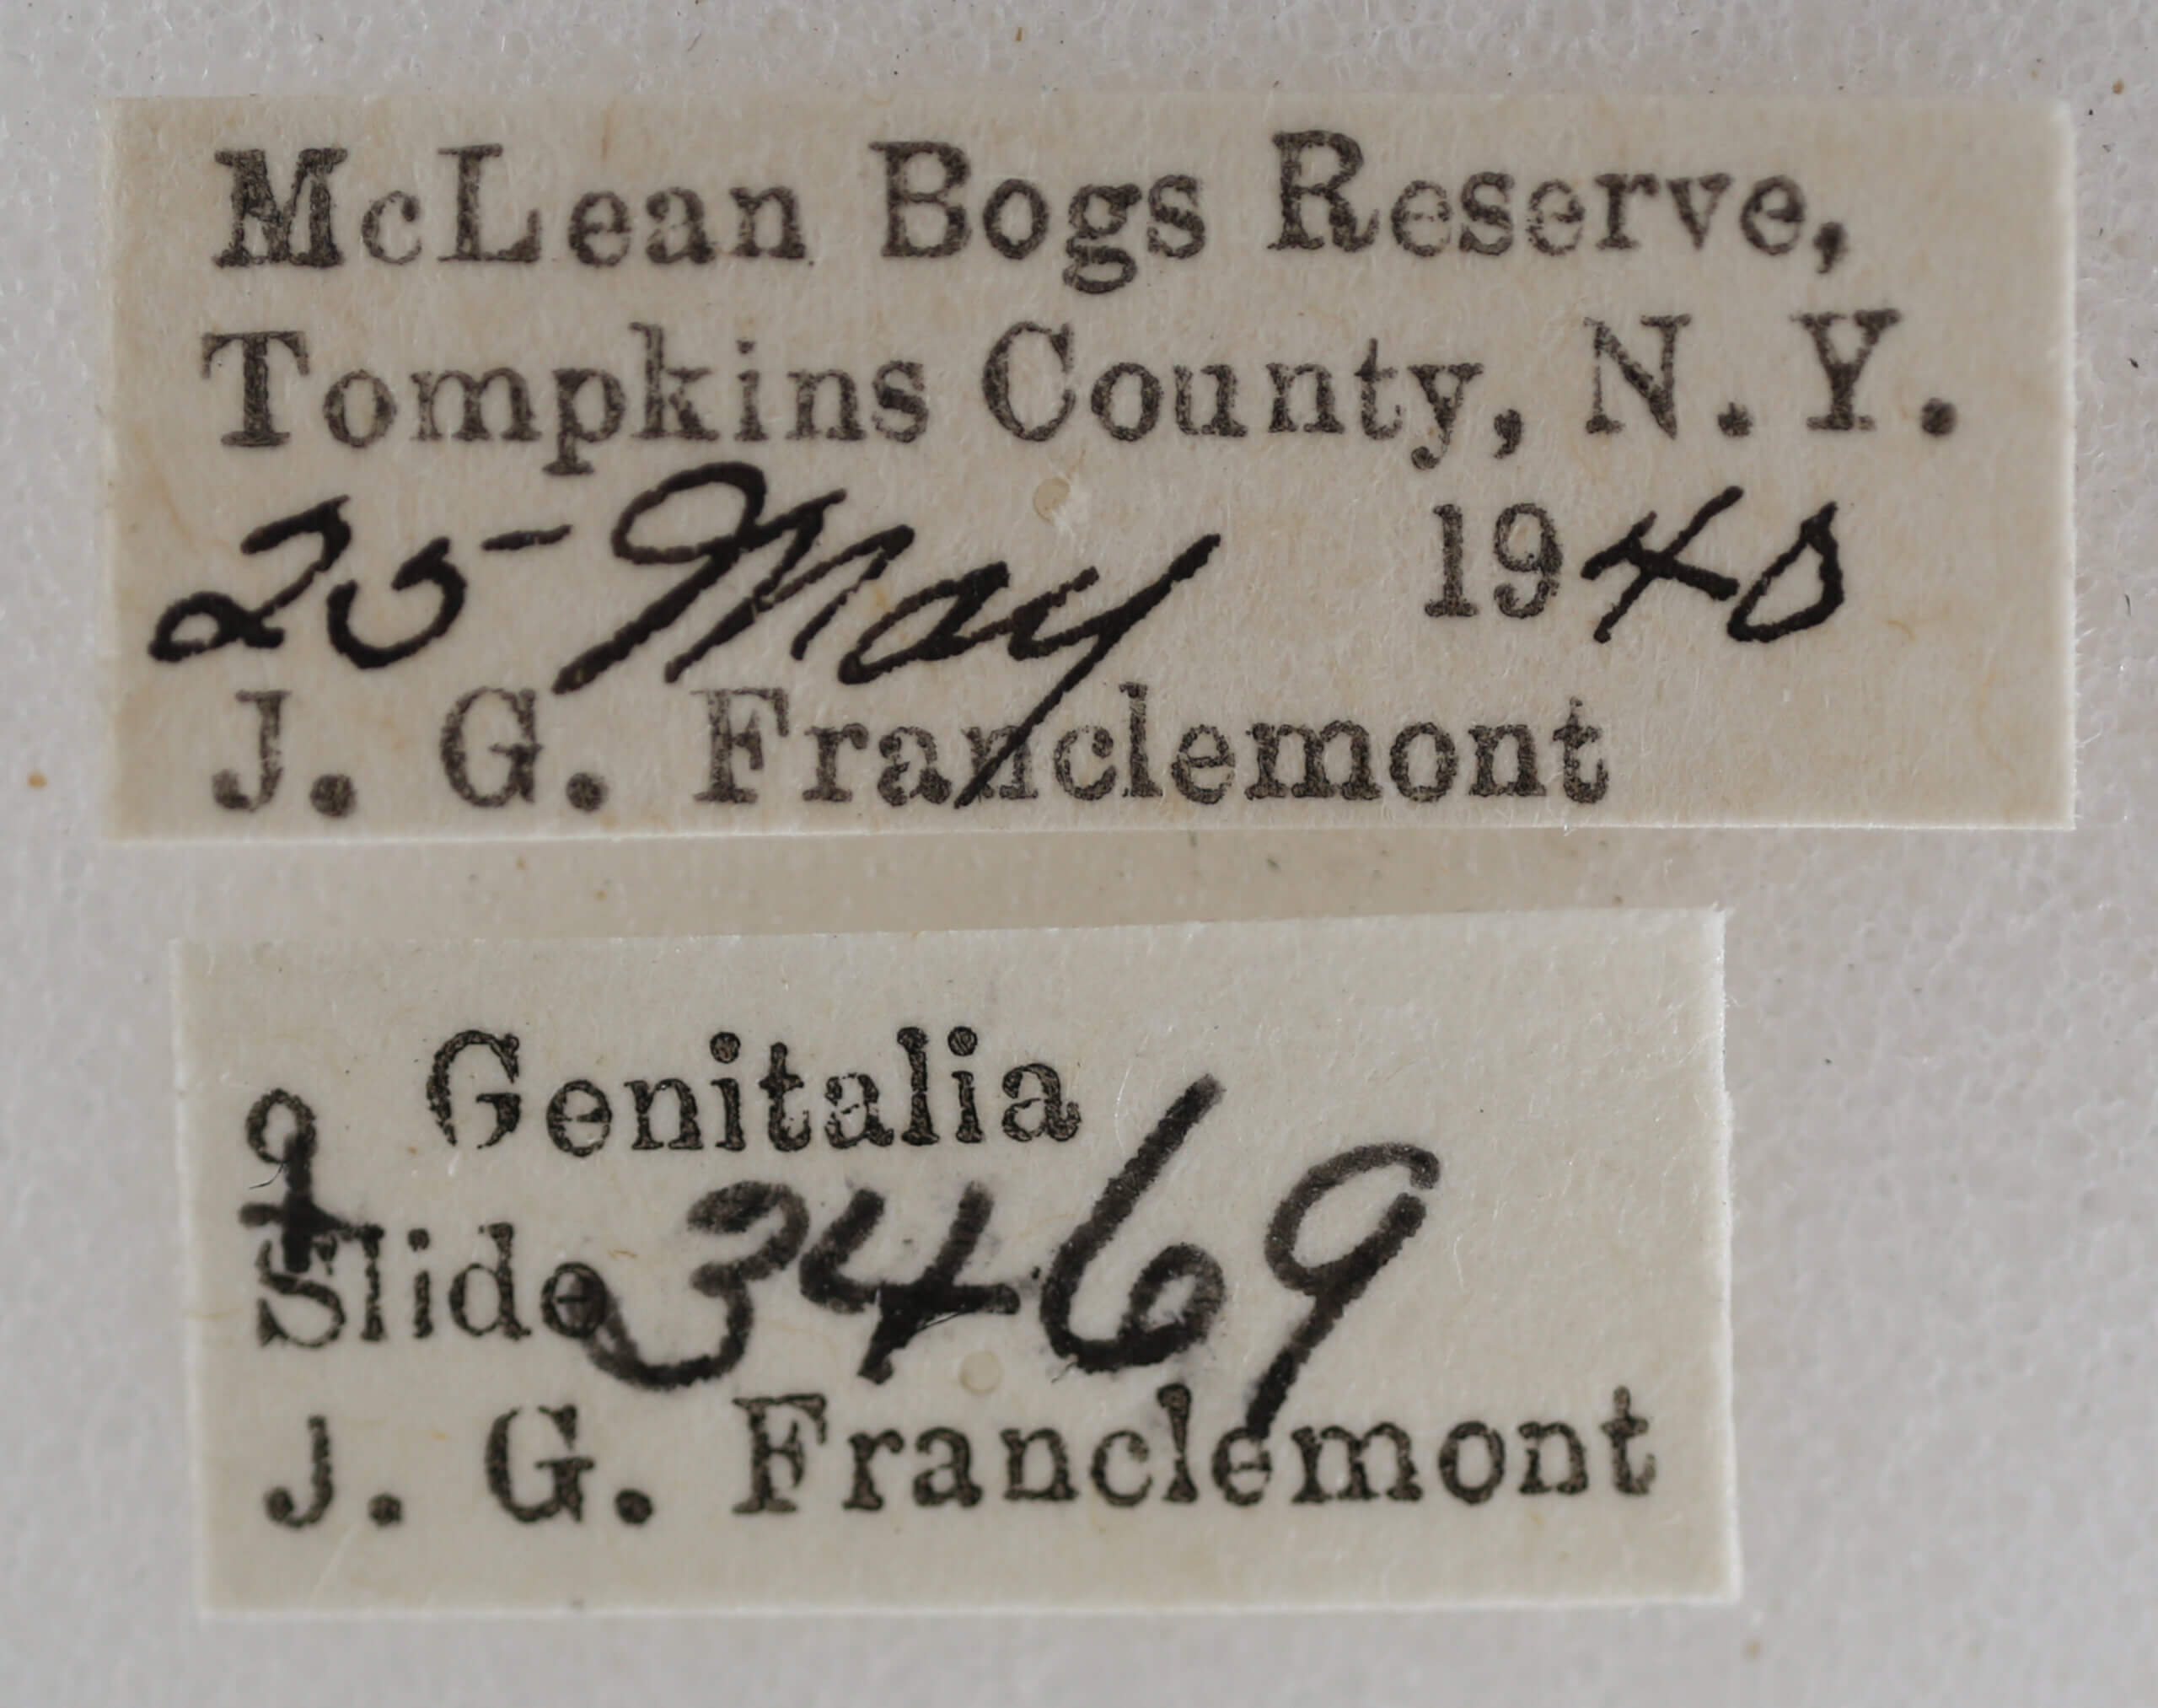 McLean Bogs Reserve,
Tompkins County, N. Y.
25 May 1940
J. G. Franclemont
Genitalia
♀
Slide 3469
J. G. Franclemont